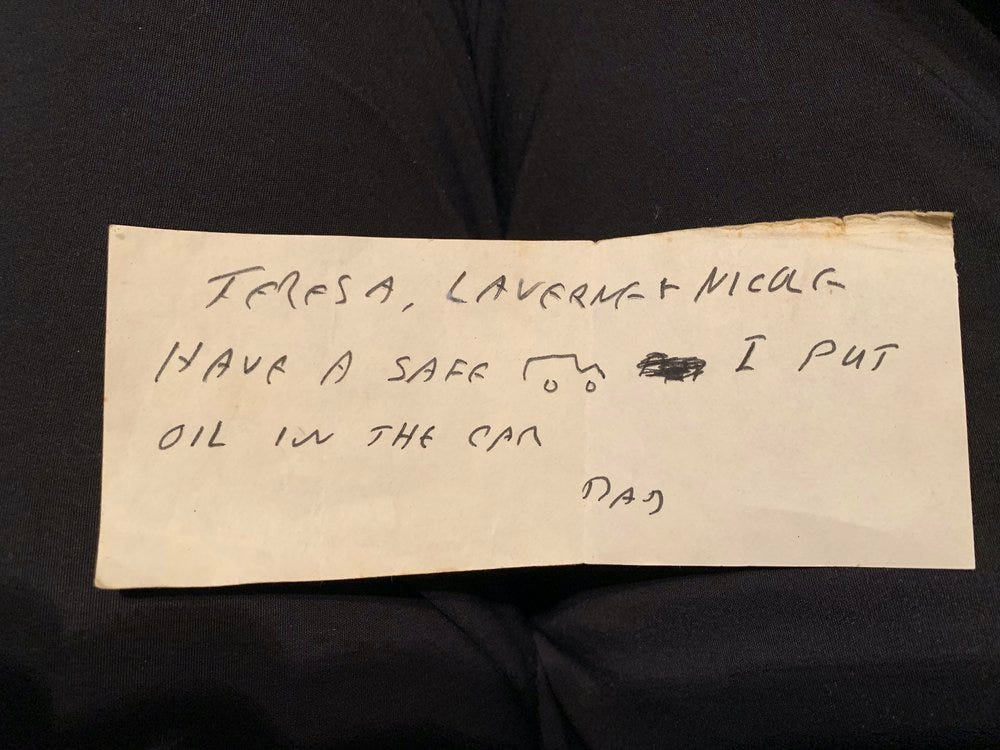 TERESA, LAVERNE + NICOLE
HAVE A SAFE I PUT
OIL IN THE CAR
DAD